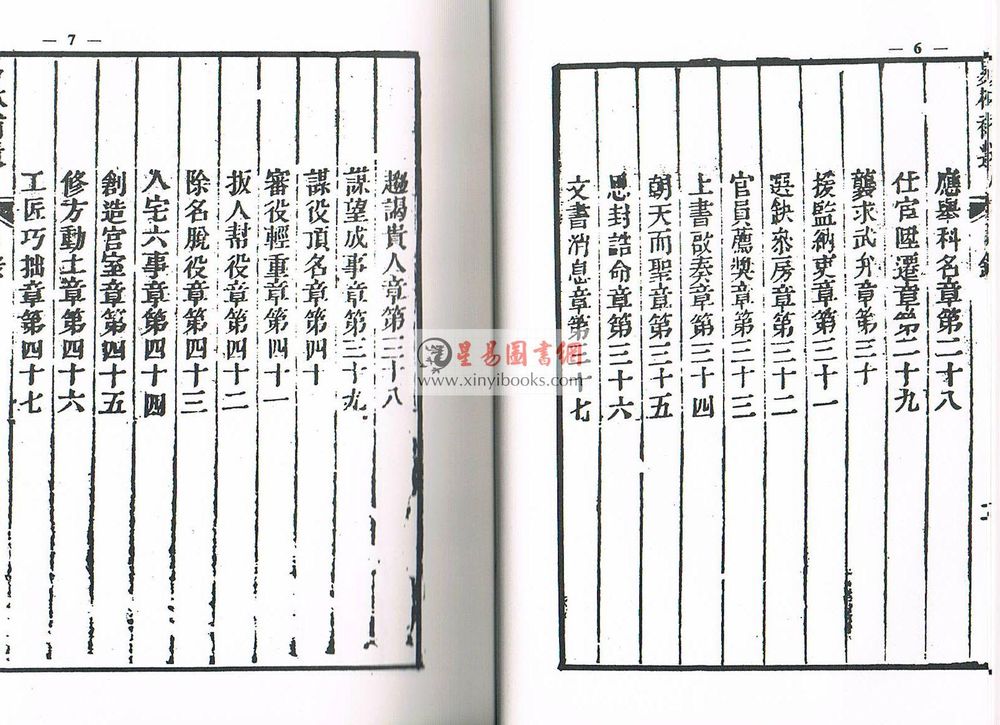 — 6 —
應舉科名章第二十八
仕宦陞遷章第二十九
襲求武弁章第三十
援監納吏章第三十一
選缺叅房章第三十二
官員薦獎章第三十三
上書啟奏章第三十四
朝天面聖章第三十五
恩封誥命章第三十六
文書消息章第三十七
— 7 —
趨謁貴人章第三十八
謀望成事章第三十九
謀役頂名章第四十
審役輕重章第四十一
扳人幇役章第四十二
除名脫役章第四十三
入宅六事章第四十四
創造宮室章第四十五
修方動土章第四十六
工匠巧拙章第四十七
星易圖書網
www.xinyibooks.com